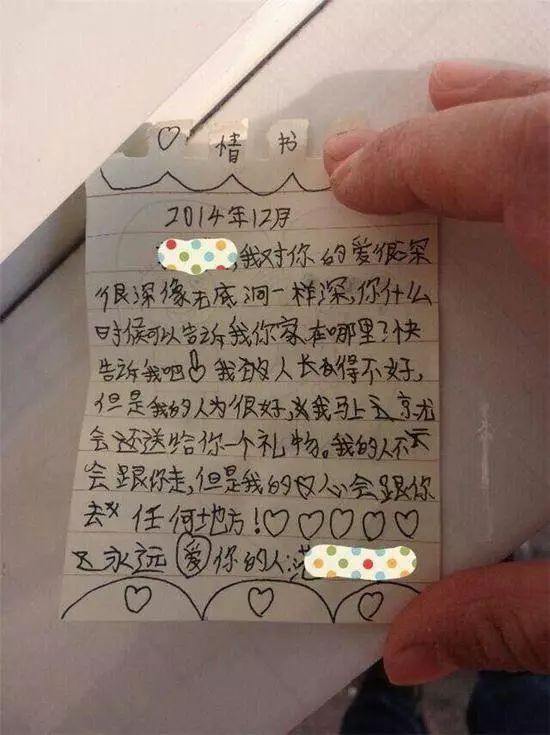 ♡ 情书
2014年12月
,我对你的爱很深
很深像无底洞一样深,你什么
时候可以告诉我你家在哪里?快
告诉我吧 我的人长得不好,
但是我的人为很好,我马上
会还送给你一个礼物。我的人不
会跟你走,但是我的心会跟你
去任何地方!♡♡♡♡♡
永远爱你的人: